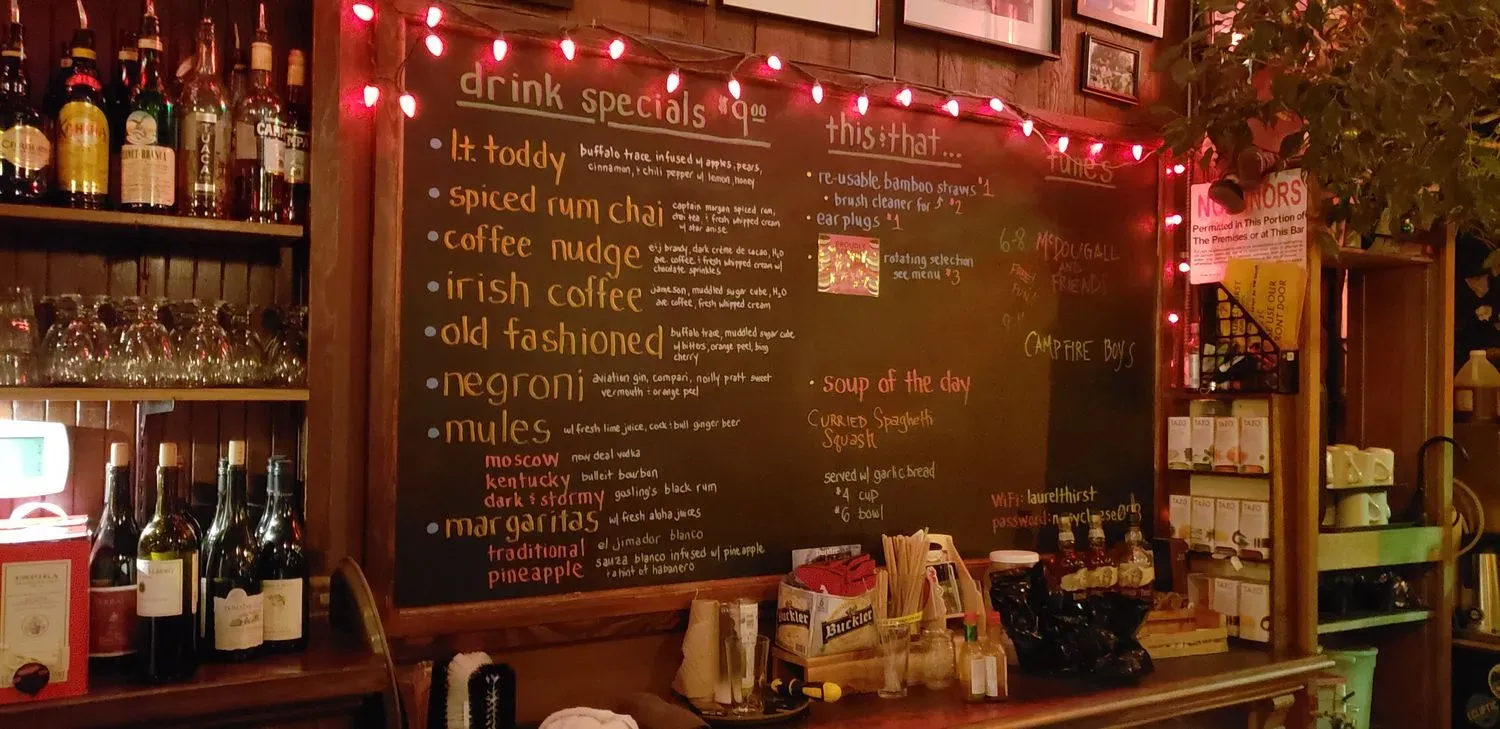 drink specials $9.00
• l.t. toddy
buffalo trace infused w/ apples, pears,
cinnamon, + chili pepper w/ lemon, honey
• spiced rum chai
captain morgan spiced rum,
chai tea, + fresh whipped cream
w/ star anise
• coffee nudge
e+j brandy, dark crème de cacao, H2O
ave coffee + fresh whipped cream w/
chocolate sprinkles
• irish coffee
jameson, muddled sugar cube, H2O
ave coffee, fresh whipped cream
• old fashioned
buffalo trace, muddled sugar cube
w/ bitters, orange peel, bing
cherry
• negroni
aviation gin, campari, noilly pratt sweet
vermouth + orange peel
• mules
w/ fresh lime juice, cock + bull ginger beer
moscow
new deal vodka
kentucky
bulleit bourbon
dark & stormy
gosling's black rum
• margaritas
w/ fresh aloha juices
traditional
el jimador blanco
pineapple
sauza blanco infused w/ pineapple
+ a hint of habanero
this & that...
• re-usable bamboo straws $1
• brush cleaner for $2
• ear plugs $1
PROUDLY
• rotating selection
see menu $3
• soup of the day
CURRIED Spaghetti
Squash
served w/ garlic bread
$4 cup
$6 bowl
tunes
6-8 McDOUGALL
AND
FRIENDS
FREE!
FUN!
CAMPFIRE BOYS
WiFi: laurelthirst
password:
MINORS
Permitted in This Portion of
The Premises or at This Bar
USE OUR
FRONT DOOR
KAHLUA
FERNET-BRANCA
TUACA
CAMPARI
Buckler
Buckler
TAZO TAZO TAZO TAZO
TAZO TAZO TAZO TAZO